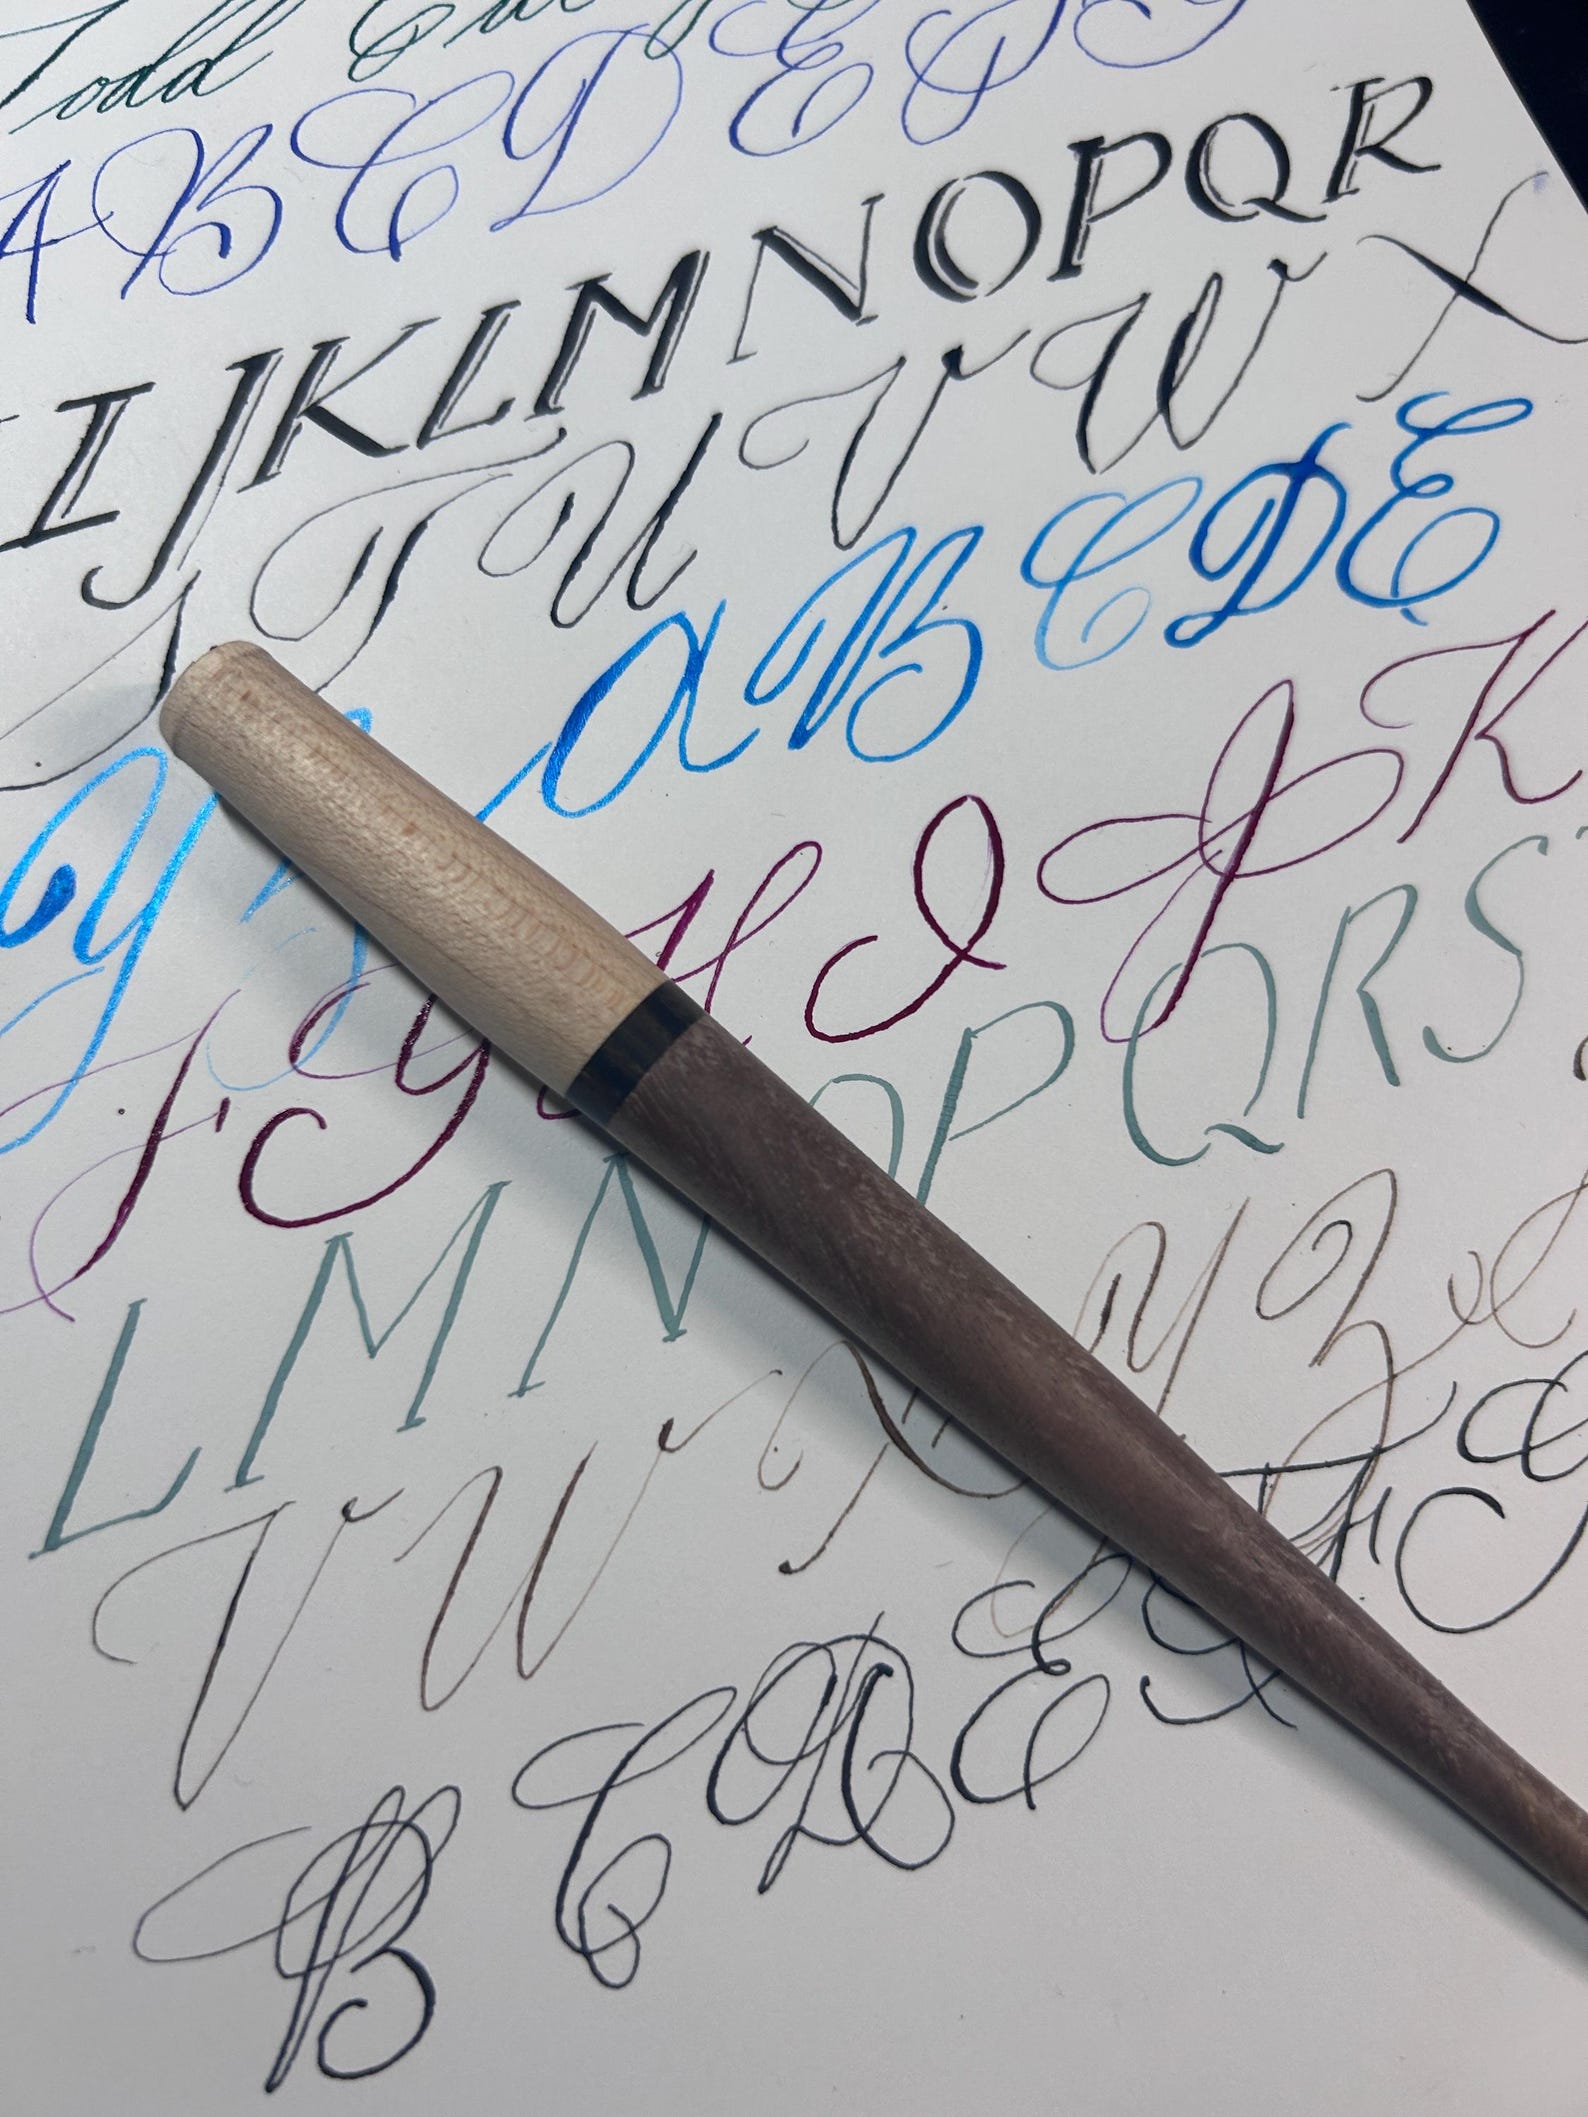 Todd
A B C D E F G
I J K L M N O P Q R
S T U V W X
Y Z a B C D E
F G H I J K
L M N O P Q R S
V W X Y Z
B C D E F G